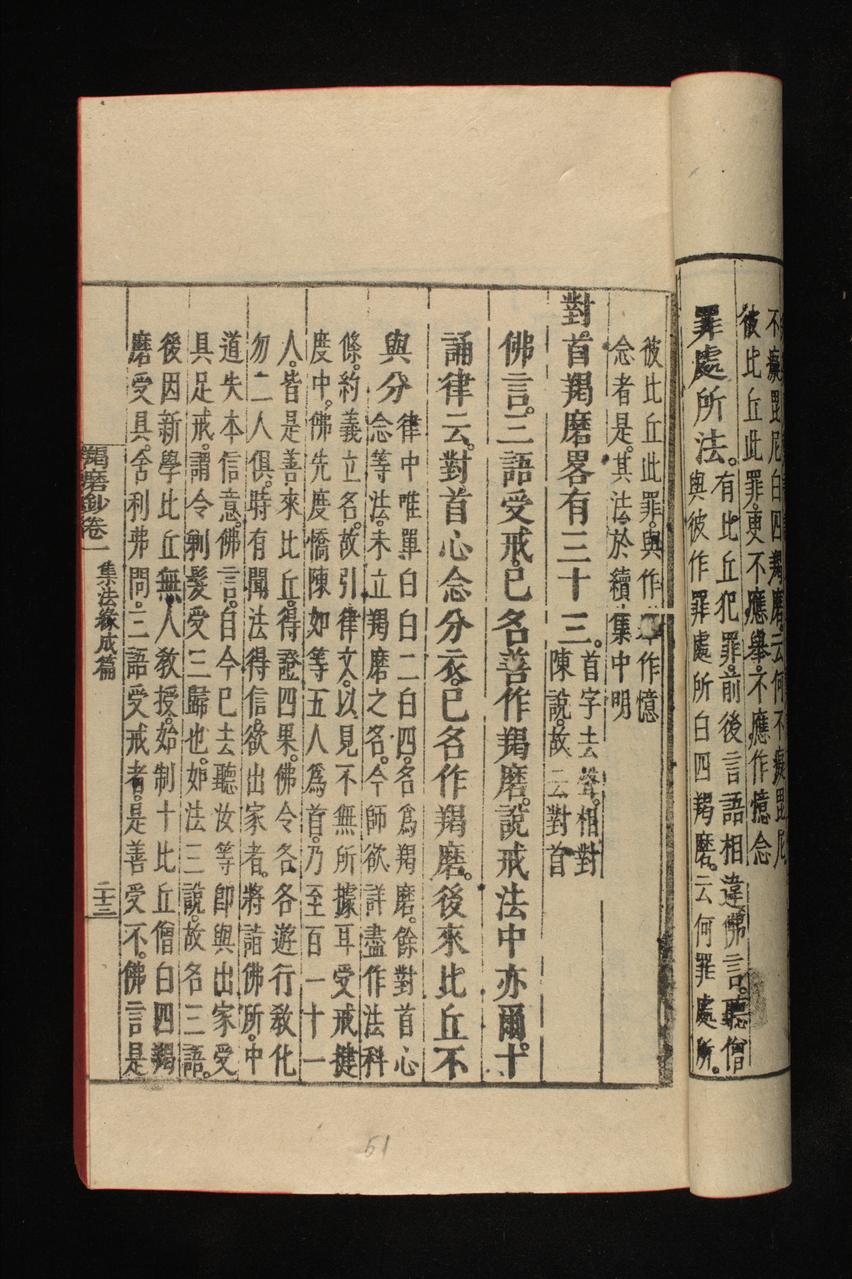 不癡毘尼白四羯磨云何不癡毘尼
彼比丘此罪更不應舉不應作憶念
罪處所法。有比丘犯罪前後言語相違佛言。聽僧
與彼作罪處所白四羯磨。云何罪處所。
彼比丘此罪。與作 作憶
念者是。其法於續集中明
對首羯磨畧有三十三。首字去聲。相對
陳說。故云對首
佛言。三語受戒。已名善作羯磨。說戒法中亦爾。十
誦律云。對首心念分衣。已名作羯磨。後來比丘不
與分律中唯單白白二白四。名為羯磨。餘對首心
念等法。未立羯磨之名。今師欲詳盡作法科
條。約義立名。故引律文。以見不無所據耳受戒揵
度中。佛先度憍陳如等五人為首。乃至百一十一
人。皆是善來比丘。得證四果。佛令各各遊行教化
勿二人俱。時有聞法得信。欲出家者。將詣佛所。中
道失本信意。佛言。自今已去聽汝等即與出家受
具足戒。謂令剃髮受三歸也。如法三說。故名三語。
後因新學比丘無人教授。始制十比丘僧白四羯
磨受具。舍利弗問。三語受戒者。是善受不。佛言是
羯磨鈔卷一 集法緣成篇 二十三
51